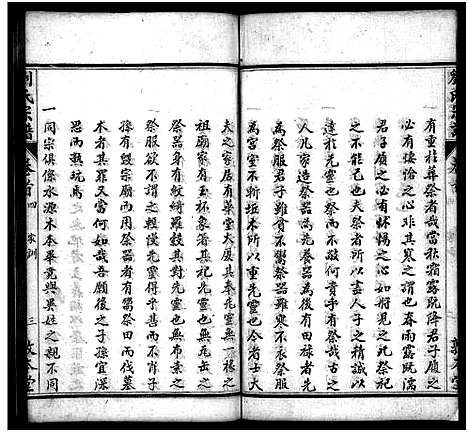 有重於葬祭者哉當秋霜既降君子履之
必有悽愴之心非其寒之謂也春雨露既濡
君子履之必有怵惕之心如將見之此祭祀
之不能已也夫祭者所以盡人子之精誠以
達於先靈也祭而不敬何貴乎有祭哉古之
人凡家造祭器為先養器為後有田祿者先
為祭服君子雖貧不鬻祭器雖寒不衣祭服
為宮室不斬坵木所以重先靈也今者士大
夫之家燕居有華堂大廈其奉先靈或無
祖廟家有玉杯象箸其祀先靈或無缶缻之
祭器焉燕居有紋繡祭先靈或無布素之
祭服欲不謂之輕慢先靈得乎甚而不肖子
孫有毀宗廟而用祭器者有鬻祭田而伐墓
木者其罪又當何如哉吾願後之子孫宜深
思而熟玩焉
一同宗俱係水源木本畢竟與異姓之親不同
劉氏宗譜
卷首
四
家訓
三
敦本堂